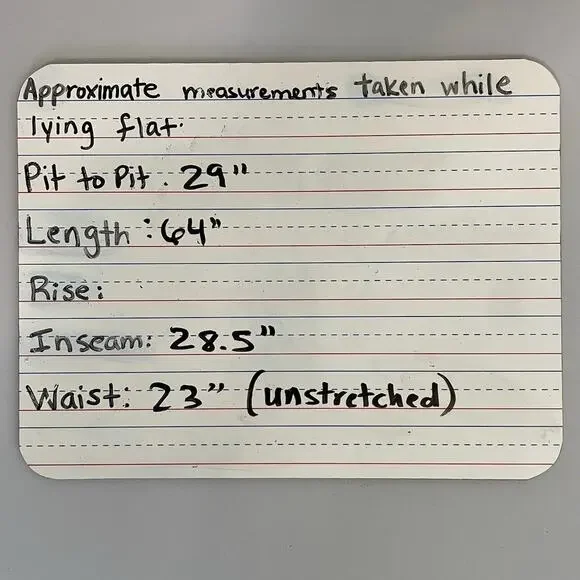 Approximate measurements taken while
lying flat.
Pit to Pit. 29"
Length: 64"
Rise:
Inseam: 28.5"
Waist: 23" (unstretched)